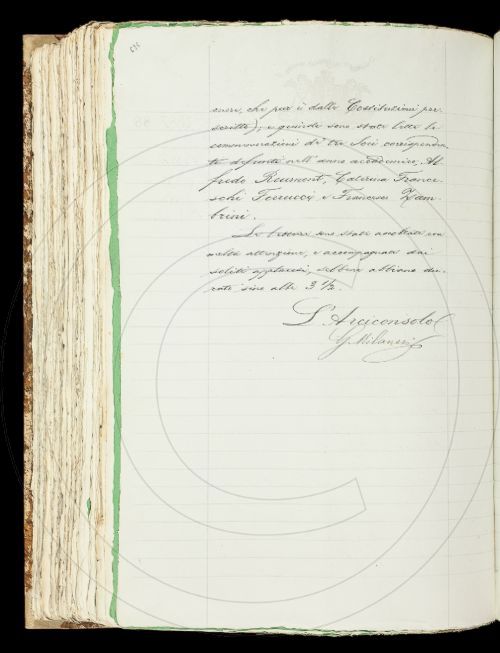 che pur è dalle Costituzioni pre-
scritto); e quindi sono state lette le
commemorazioni di tre Soci corrisponden-
ti defunti nell'anno accademico, Al-
fredo Reumont, Caterina France-
schi Ferrucci e Francesco Zam-
brini.
Le letture sono state ascoltate con
molta attenzione, e accompagnate dai
soliti applausi, sebbene abbiano du-
rato sino alle 3 ½.
L'Arciconsolo
G. Milanesi